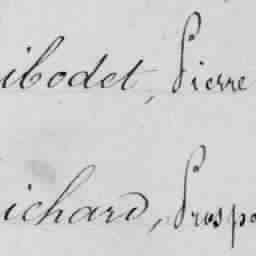 ibodet, Pierre
ichard, Prosp